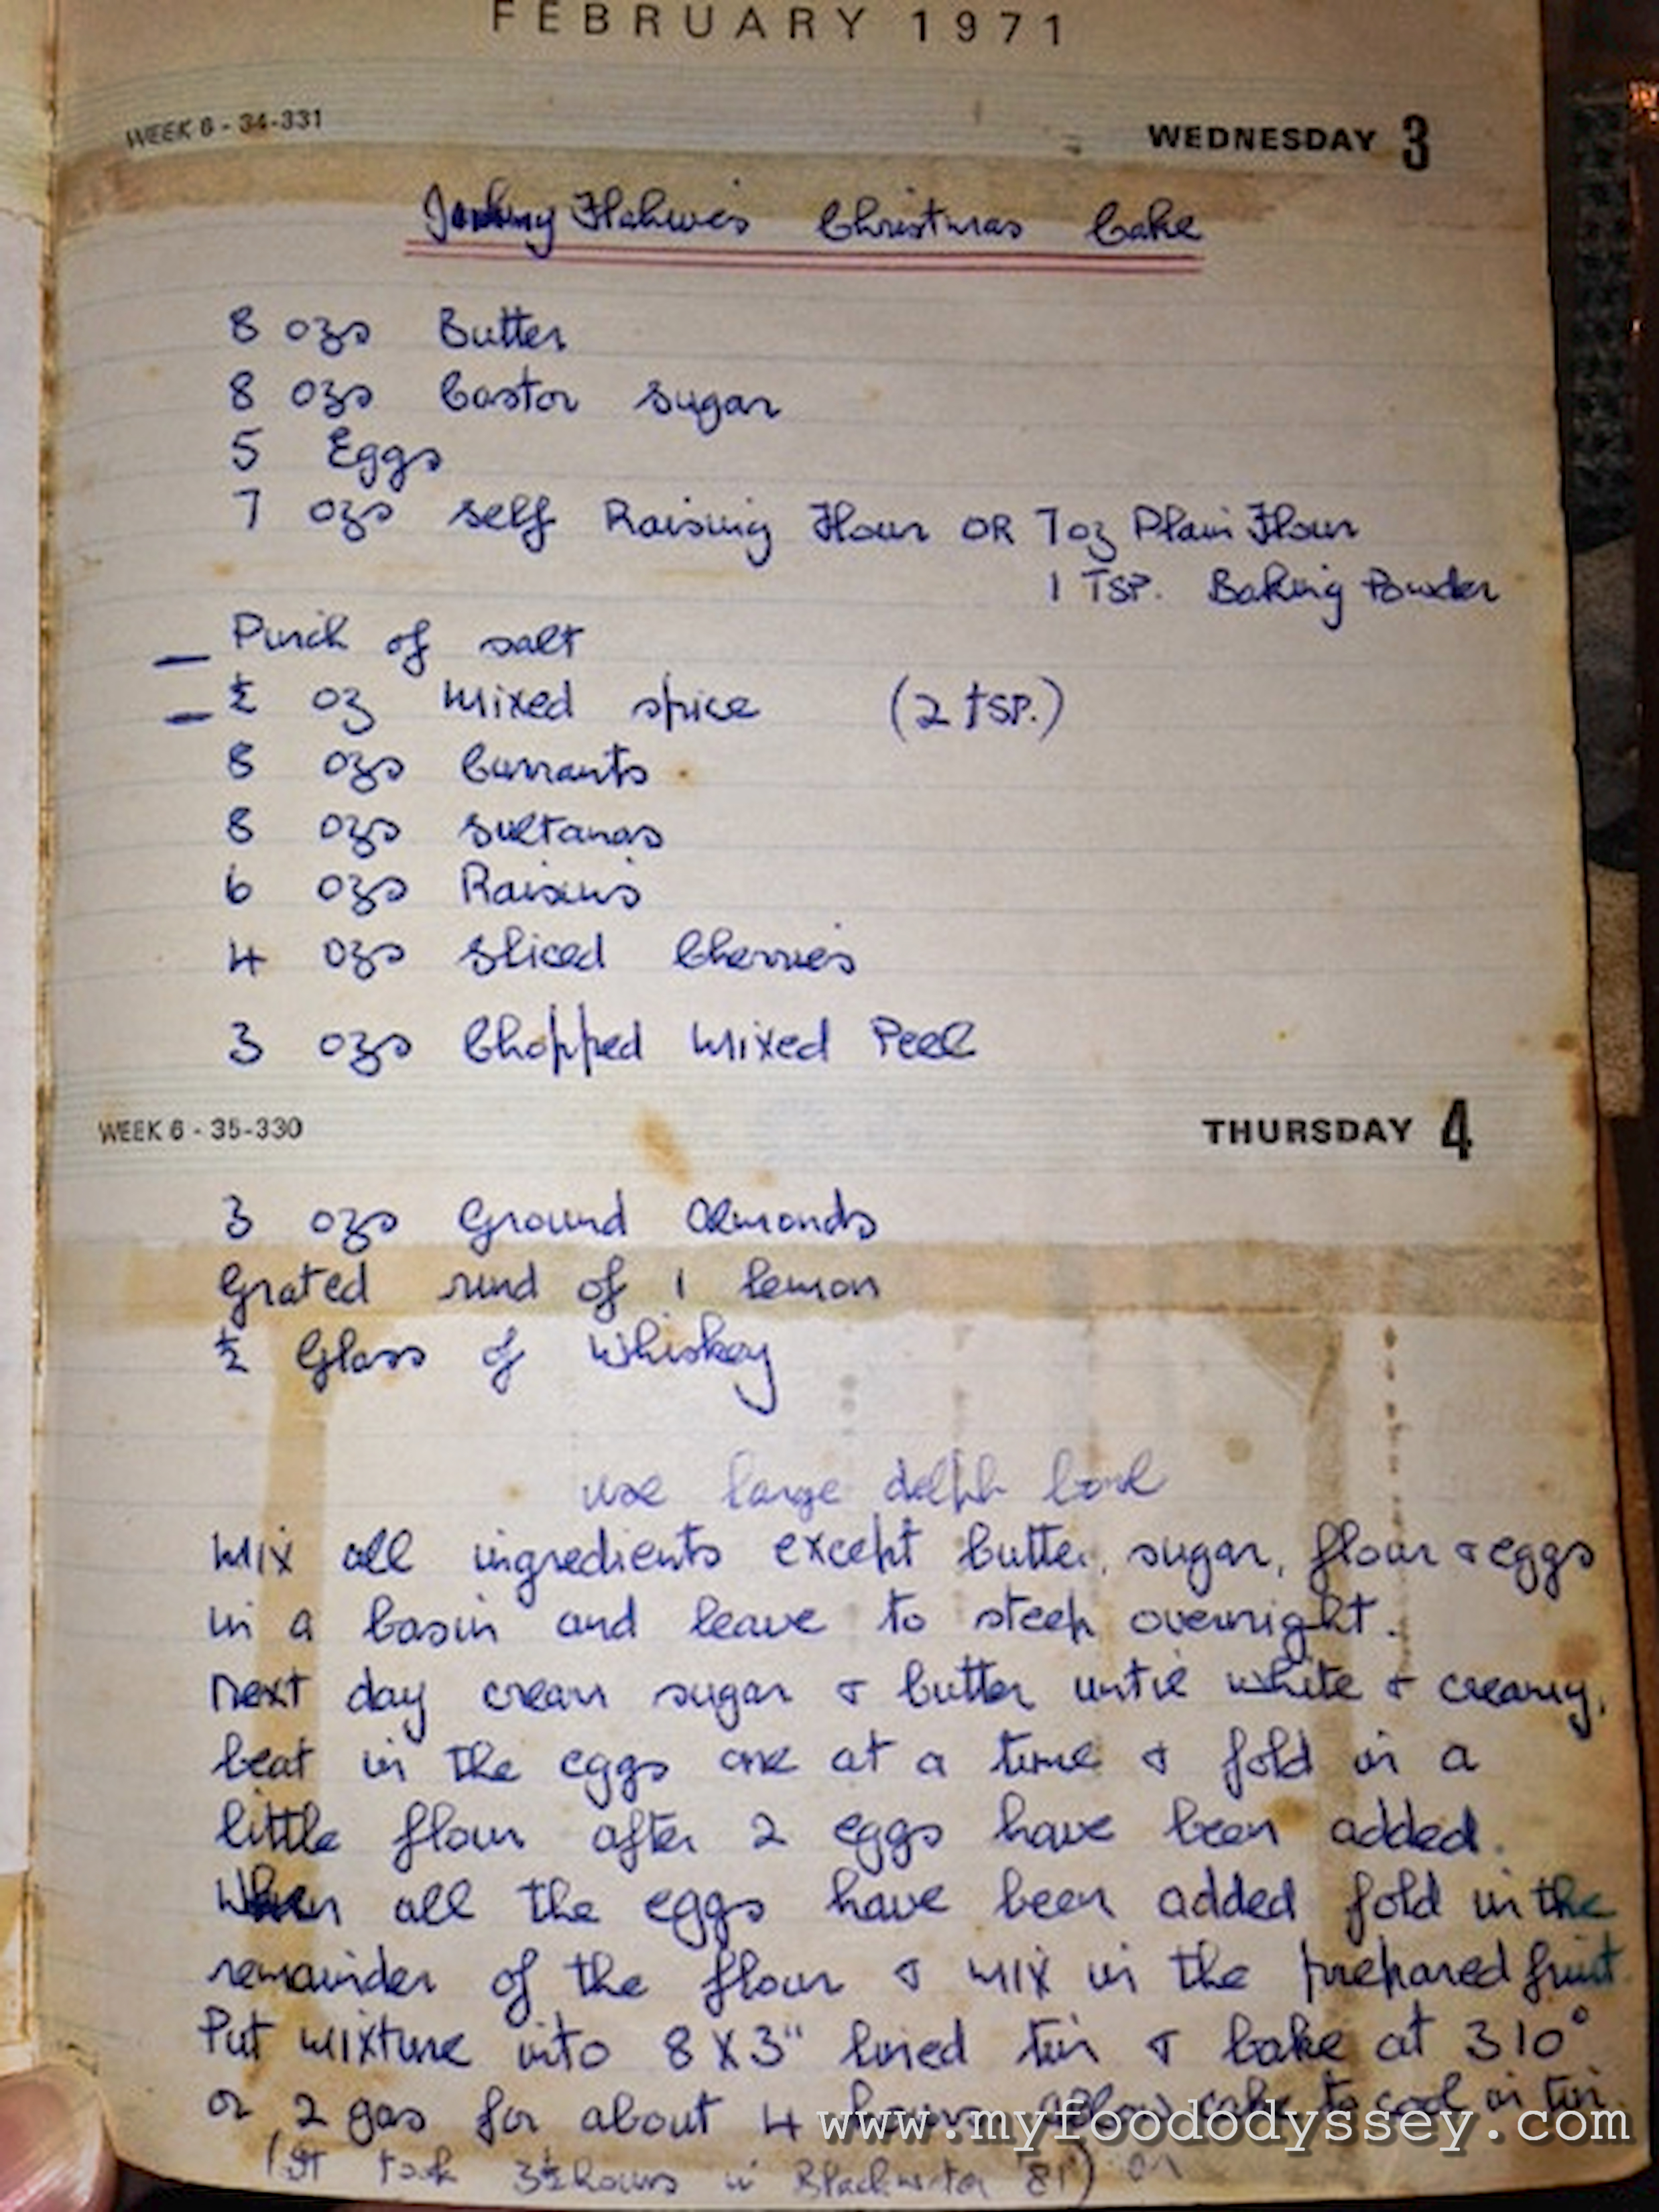 FEBRUARY 1971
WEEK 6 - 34-331 WEDNESDAY 3
Christmas Cake
8 ozs Butter
8 ozs Castor sugar
5 Eggs
7 ozs self Raising Flour OR 7oz Plain Flour
1 TSP. Baking Powder
— Pinch of salt
— ½ oz Mixed spice (2 tSP.)
8 ozs Currants
8 ozs Sultanas
6 ozs Raisins
4 ozs Sliced Cherries
3 ozs Chopped Mixed Peel
WEEK 6 - 35-330 THURSDAY 4
3 ozs Ground Almonds
Grated rind of 1 lemon
½ Glass of Whiskey
use large delph bowl
Mix all ingredients except butter, sugar, flour & eggs
in a basin and leave to steep overnight.
Next day cream sugar & butter until white & creamy,
beat in the eggs one at a time & fold in a
little flour after 2 eggs have been added.
When all the eggs have been added fold in the
remainder of the flour & mix in the prepared fruit.
Put mixture into 8 X 3" lined tin & bake at 310°
or 2 gas for about 4 hours. allow cake to cool in tin.
(It took 3½ hours in Blackwater '81) on
www.myfoododyssey.com